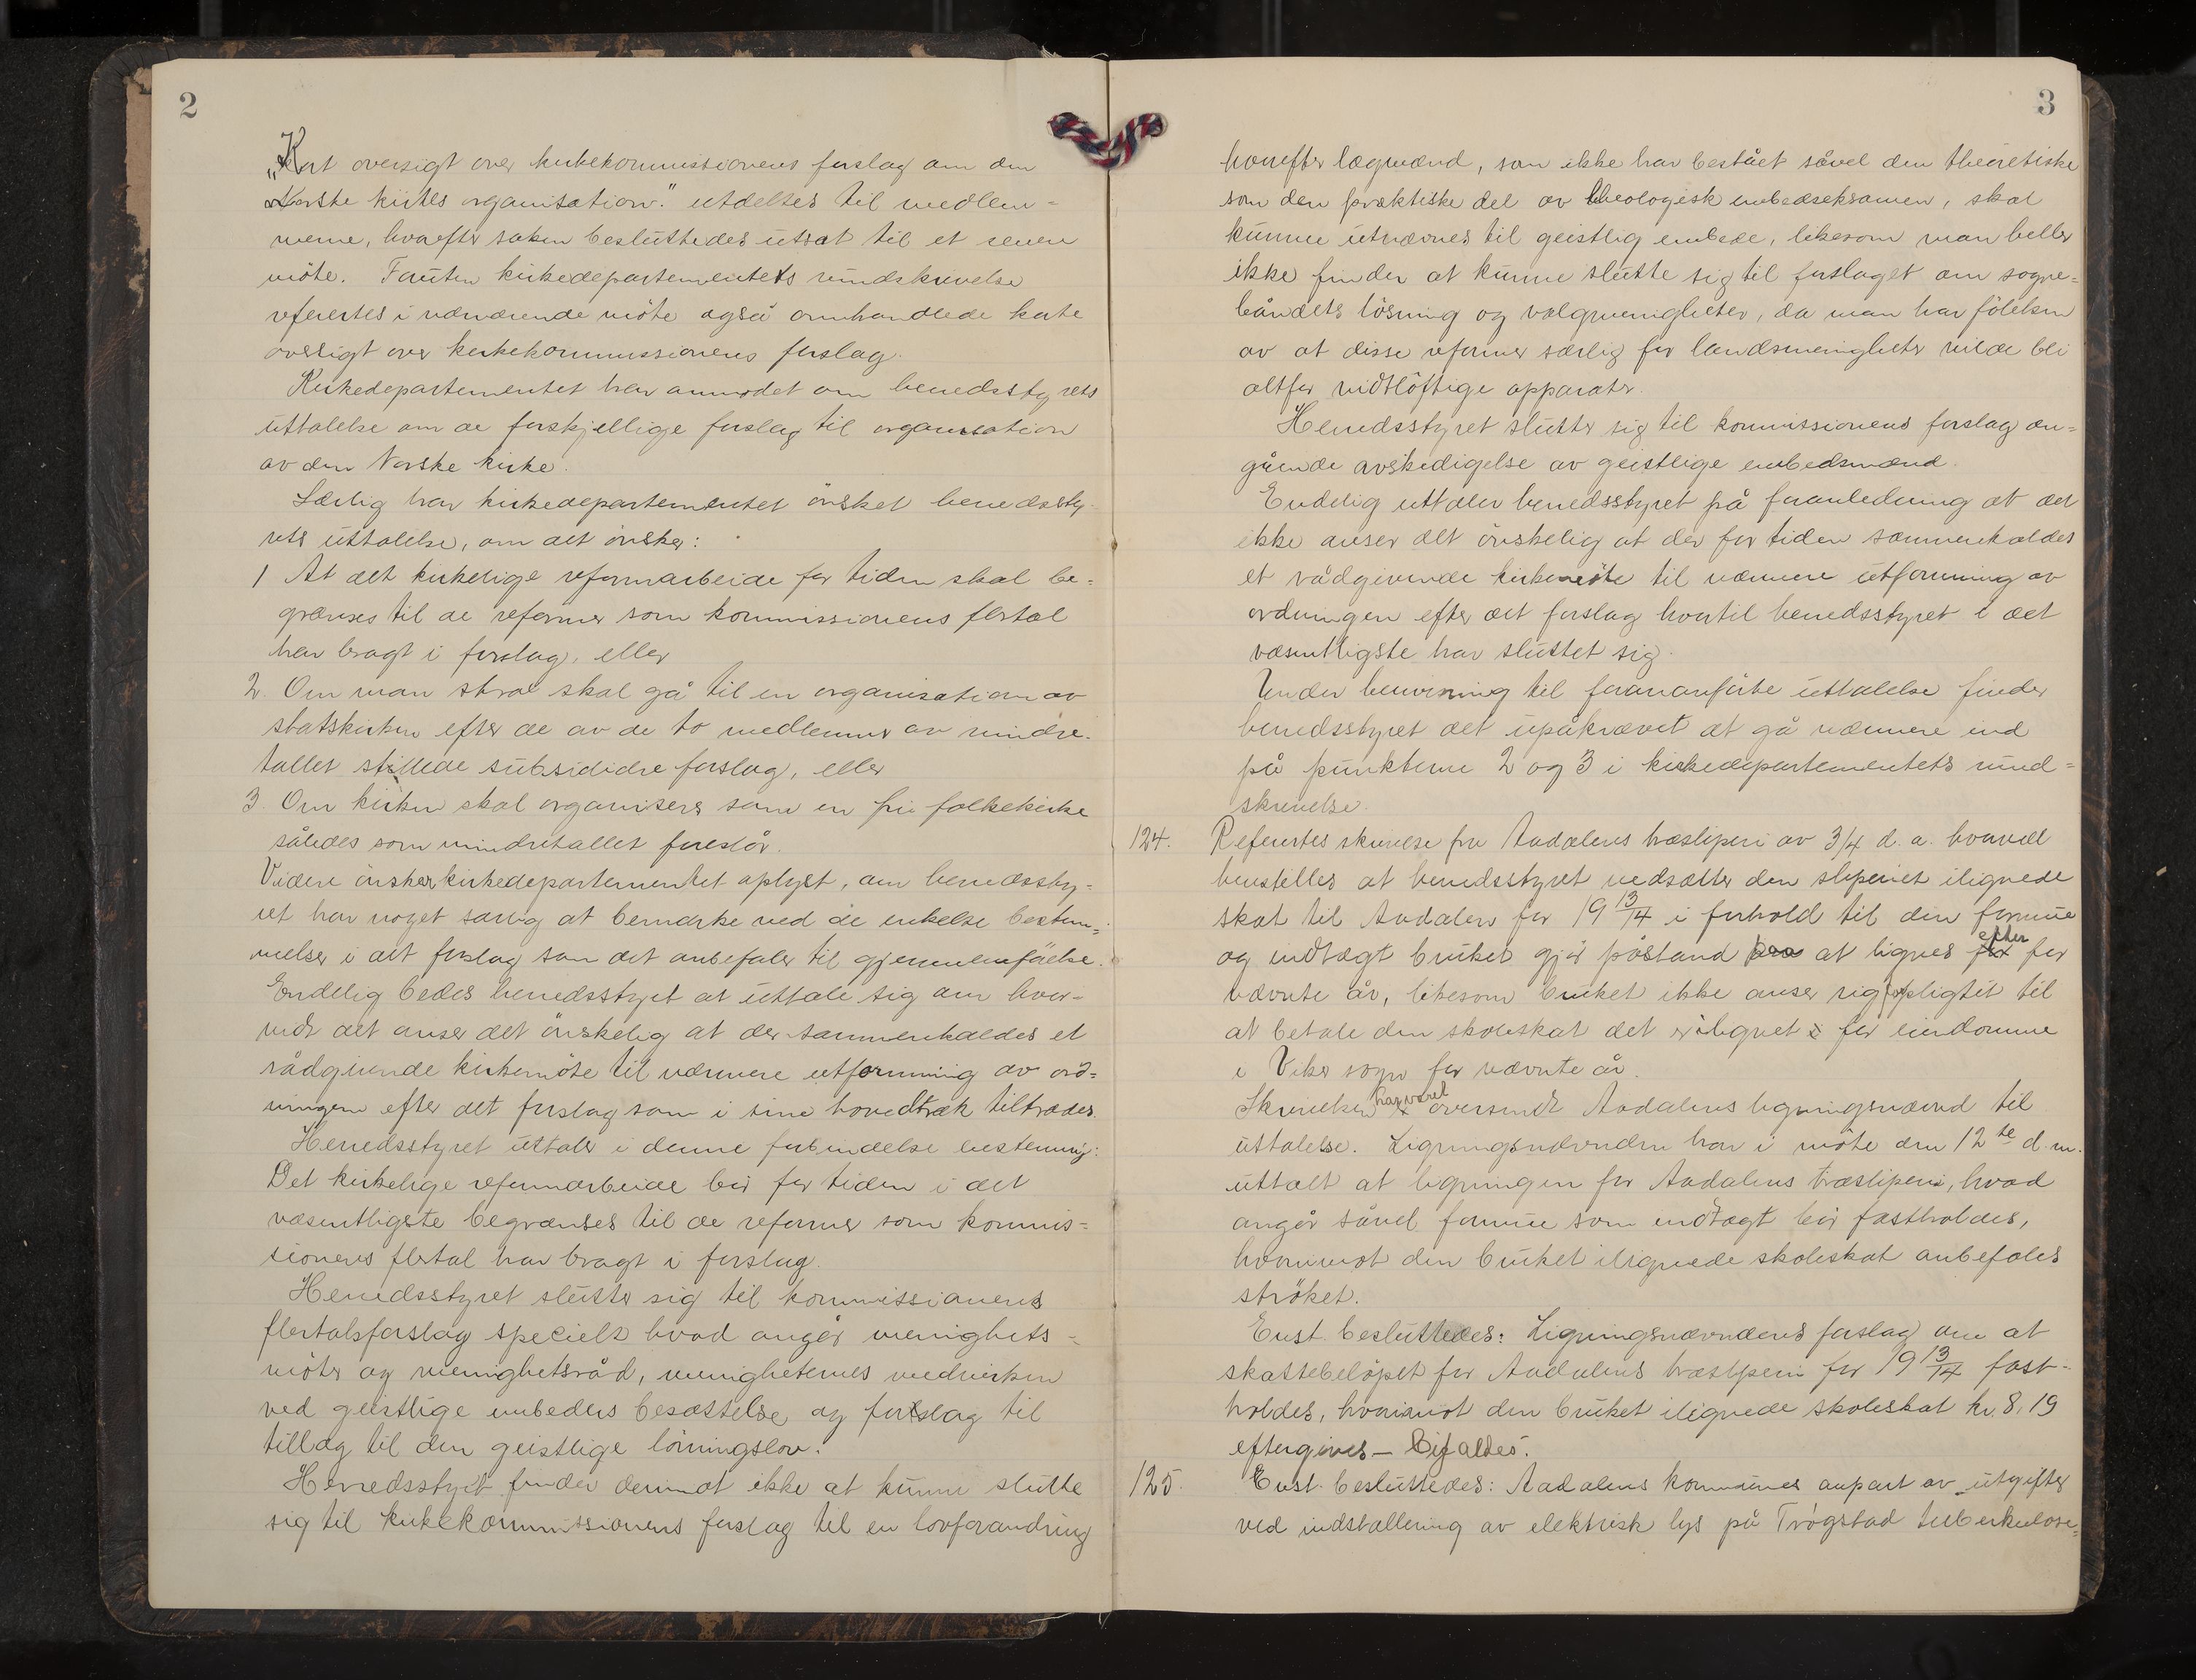 2
„Kort oversigt over kirkekommissionens forslag om den
Norske kirkes organisation." utdeltes til medlem-
merne, hvorefter saken besluttedes utsat til et senere
møte. Foruten kirkedepartementets rundskrivelse
refereres i nærværende møte også omhandlede korte
oversigt over kirkekommissionens forslag.
Kirkedepartementet har anmodet om herredsstyrets
uttalelse om de forskjellige forslag til organisation
av den Norske kirke.
Særlig har kirkedepartementet ønsket herredssty-
rets uttalelse, om det ønsker:
1 At det kirkelige reformarbeide for tiden skal be-
grænses til de reformer som kommissionens flertal
har bragt i forslag, eller
2. Om man skal gå til en organisation av
statskirken efter de av de to medlemmer av mindre-
tallet stillede subsidiære forslag, eller
3. Om kirken skal organiseres som en fri folkekirke
således som mindretallet foreslår.
Videre ønsker kirkedepartementet oplyst, om herredssty-
ret har noget særlig at bemærke ved de enkelte bestem-
melser i det forslag som det anbefaler til gjennemførelse.
Endelig bedes herredsstyret at uttale sig om hvor-
vidt det anser det ønskelig at der sammenkaldes et
rådgivende kirkemøte til nærmere utformning av ord-
ningen efter det forslag som i sine hovedtræk tiltrædes.
Herredsstyret uttaler i denne forbindelse enstemmig:
Det kirkelige reformarbeide bør for tiden i det
væsentligste begrænses til de reformer som kommis-
sionens flertal har bragt i forslag.
Herredsstyret slutter sig til kommissionens
flertalsforslag specielt hvad angår menighets-
møter og menighetsråd, menigheternes medvirken
ved geistlige embeders besættelse og forslag til
tillæg til den geistlige lønningslov.
Herredsstyret finder derimot ikke at kunne slutte
sig til kirkekommissionens forslag til en lovforandring
3
hvorefter lægmænd, som ikke har bestået såvel den theoretiske
som den praktiske del av theologisk embedseksamen, skal
kunne utnævnes til geistlig embede, likesom man heller
ikke finder at kunne slutte sig til forslaget om sogne-
båndets løsning og valgmenigheter, da man har følelsen
av at disse reformer særlig for landsmenigheter vilde bli
altfor vidtløftige apparater.
Herredsstyret slutter sig til kommissionens forslag an-
gående avskedigelse av geistlige embedsmænd.
Endelig uttaler herredsstyret på foranledning at det
ikke anser det ønskelig at der for tiden sammenkaldes
et rådgivende kirkemøte til nærmere utformning av
ordningen efter det forslag hvortil herredsstyret i det
væsentligste har sluttet sig.
Under henvisning til forananførte uttalelse finder
herredsstyret det upåkrævet at gå nærmere ind
på punkterne 2 og 3 i kirkedepartementets rund-
skrivelse.
124. Refereres skrivelse fra Aadalens træsliperi av 3/4 d. a. hvorved
henstilles at herredsstyret nedsætter den sliperiet ilignede
skat til Aadalen for 19 13/14 i forhold til den formue
og indtægt bruket gjør påstand paa at lignes efter for
nævnte år, likesom bruket ikke anser sig forpligtet til
at betale den skoleskat det er ilignet for eiendomme
i Viker sogn for nævnte år.
Skrivelsen har været oversendt Aadalens ligningsnævnd til
uttalelse. Ligningsnævnden har i møte den 12te d. m.
uttalt at ligningen for Aadalens træsliperi, hvad
angår såvel formue som indtægt bør fastholdes,
hvorimot den bruket ilignede skoleskat anbefales
strøket.
Enst. besluttedes: Ligningsnævndens forslag om at
skattebeløpet for Aadalens træsliperi for 19 13/14 fast-
holdes, hvorimot den bruket ilignede skoleskat kr. 8,19
eftergives – Bifaldes.
125. Enst. besluttedes: Aadalens kommunes anpart av utgifter
ved indstallering av elektrisk lys på Trøgstad tuberkulose-